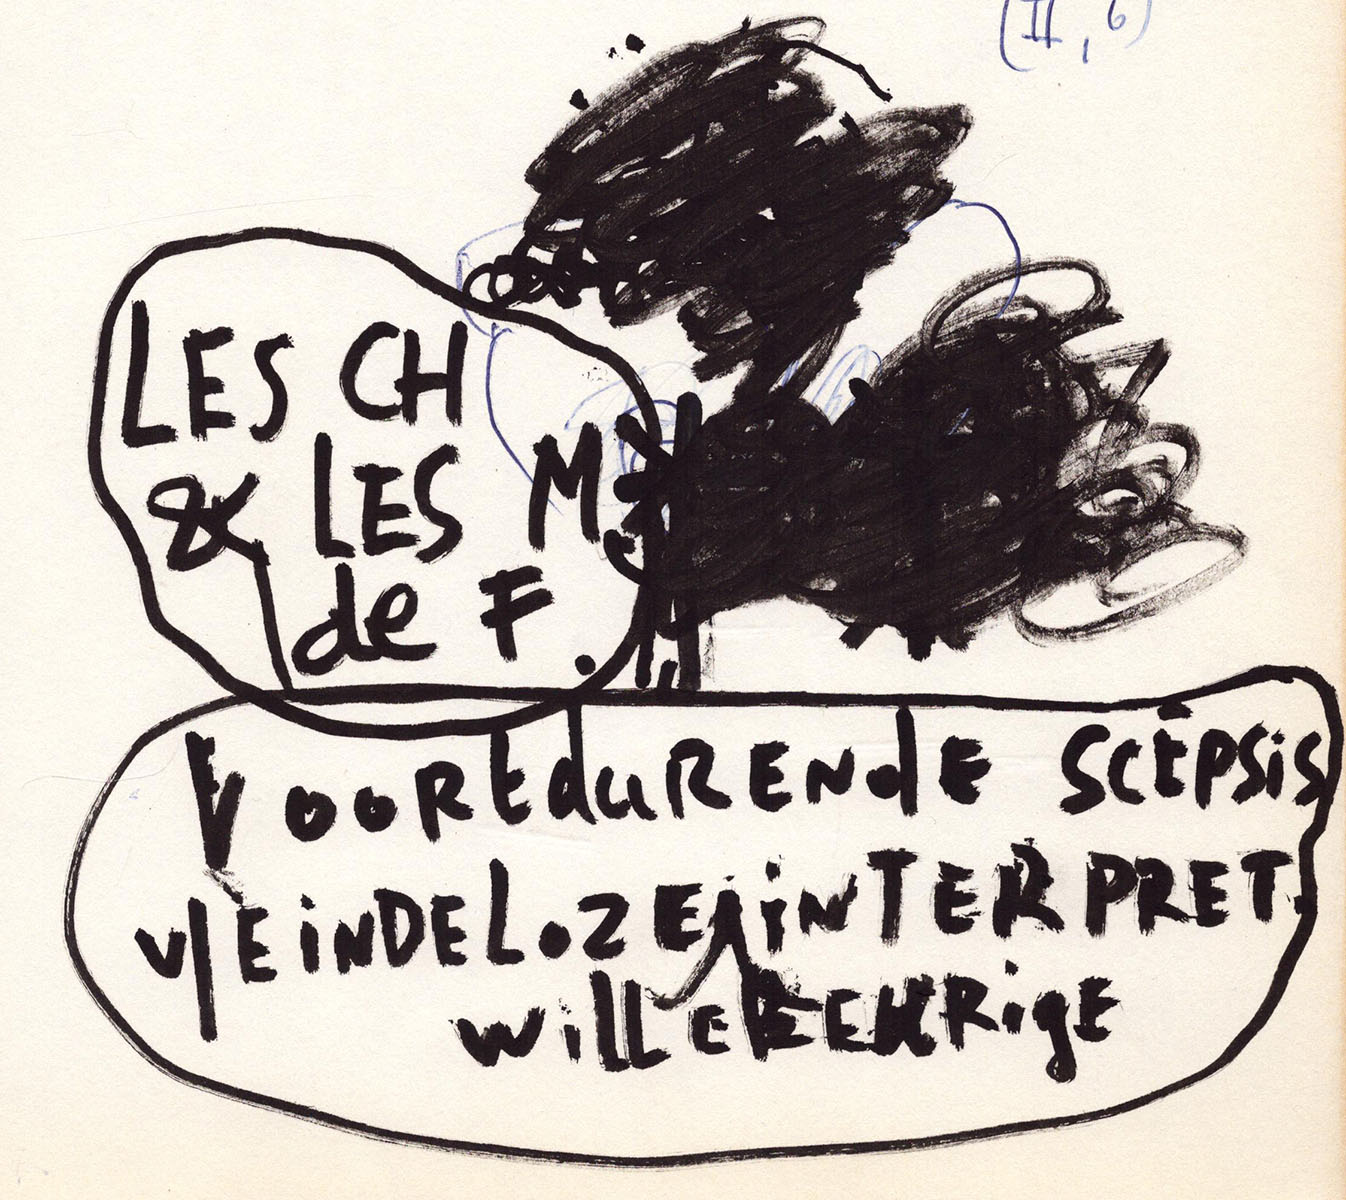 (II, 6)
LES CH
& LES M.
de F.
VOORtduRENdE SCEPSiS
v/EiNDELOZE iNTERPRET.
willEKEURigE